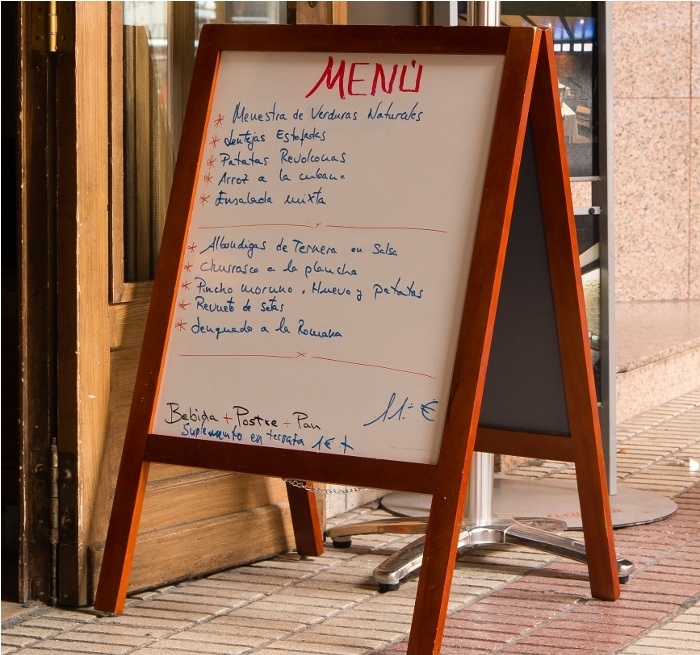 MENÚ
* Menestra de Verduras Naturales
* Lentejas Estofadas
* Patatas Revolconas
* Arroz a la cubana
* Ensalada mixta
* Albondigas de Ternera en Salsa
* Churrasco a la plancha
* Pincho moruno, Huevo y patatas
* Revueto de setas
* Lenguado a la Romana
Bebida + Postre + Pan 11.- €
Suplemento en terraza 1€ +